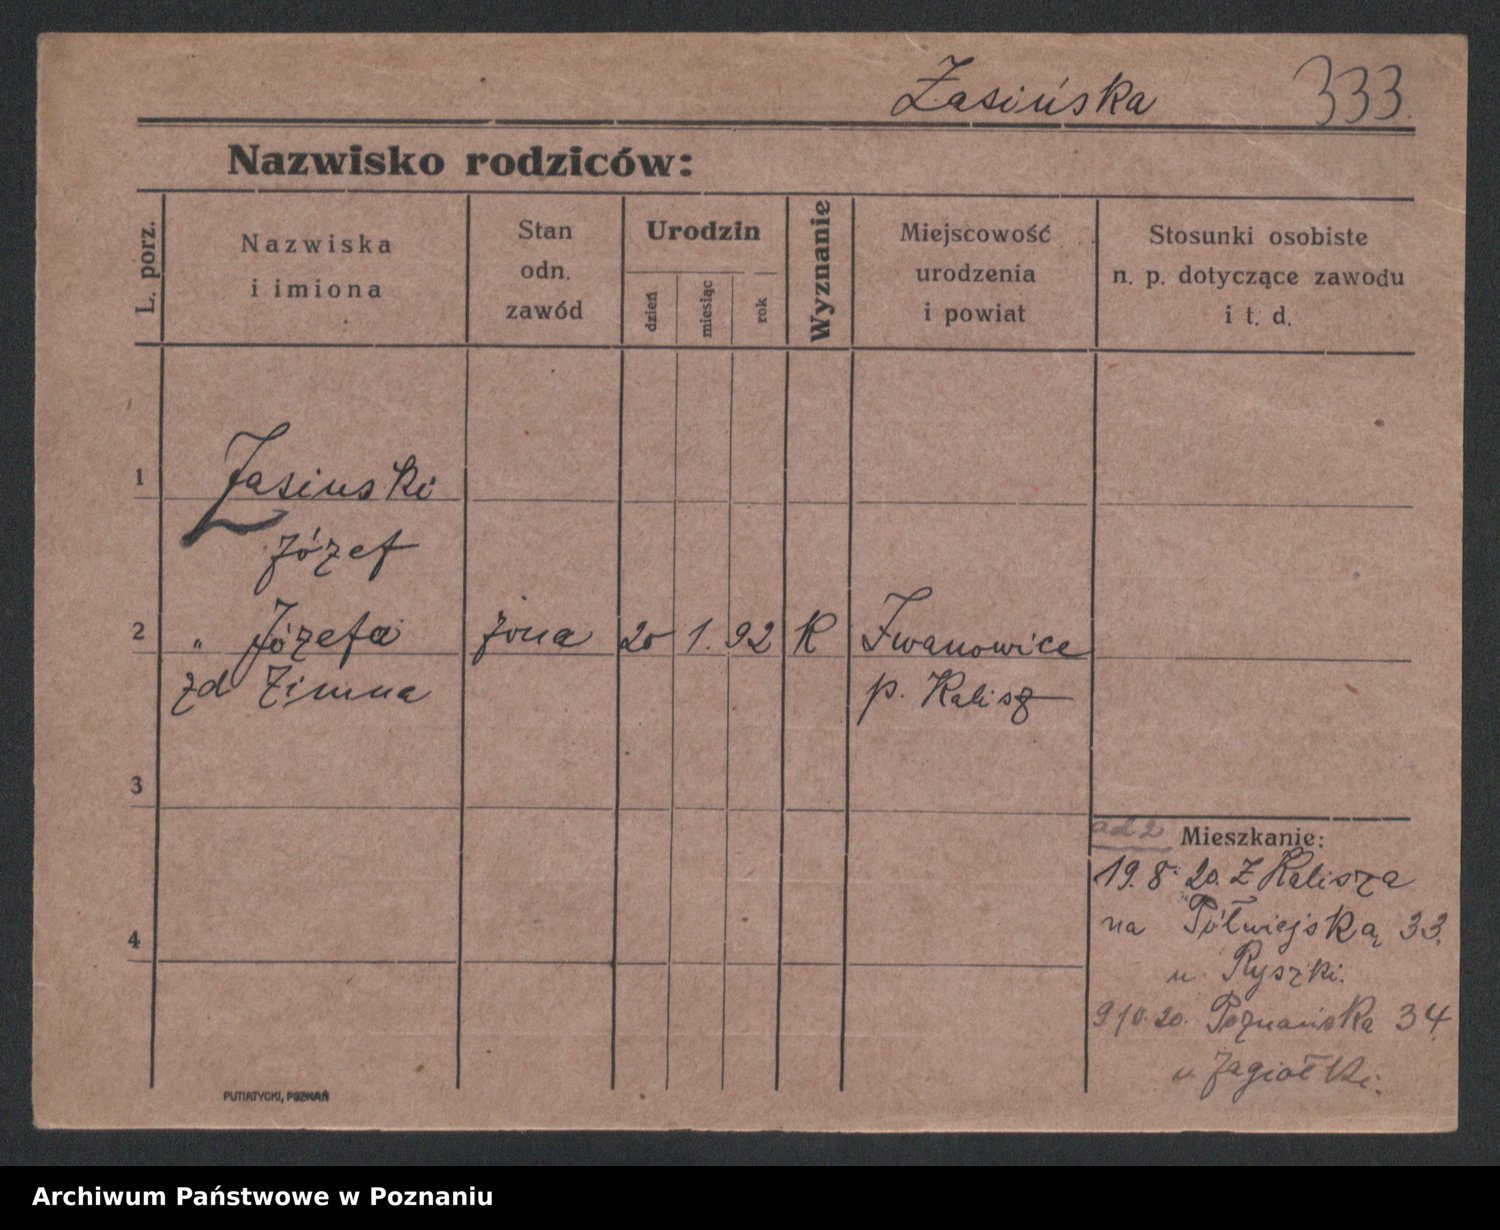 Zasińska 333.
Nazwisko rodziców:
L. porz.
Nazwiska
i imiona
Stan
odn.
zawód
Urodzin
dzień
miesiąc
rok
Wyznanie
Miejscowość
urodzenia
i powiat
Stosunki osobiste
n. p. dotyczące zawodu
i t. d.
1 Zasinski
Józef
2 " Józefa żona 20 1. 92 K Iwanowice
zd Zimna p. Kalisz
3
4
ad 2 Mieszkanie:
19. 8. 20. z Kalisza
na Półwiejską 33.
u Ryszki.
9 10. 20. Poznańska 34
u Jagiołki.
PUTIATYCKI, POZNAŃ
Archiwum Państwowe w Poznaniu